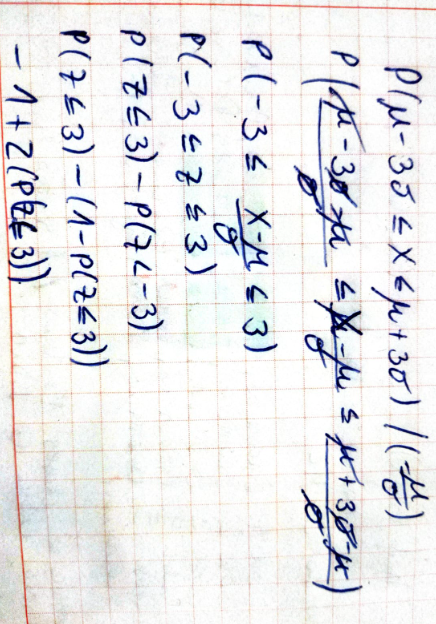 P(μ-3σ ≤ X ≤ μ+3σ) / (-μ/σ)
P((μ-3σ-μ)/σ ≤ (X-μ)/σ ≤ (μ+3σ-μ)/σ)
P(-3 ≤ (X-μ)/σ ≤ 3)
P(-3 ≤ z ≤ 3)
P(z ≤ 3) - P(z < -3)
P(z ≤ 3) - (1-P(z ≤ 3))
-1+2(P(z ≤ 3))